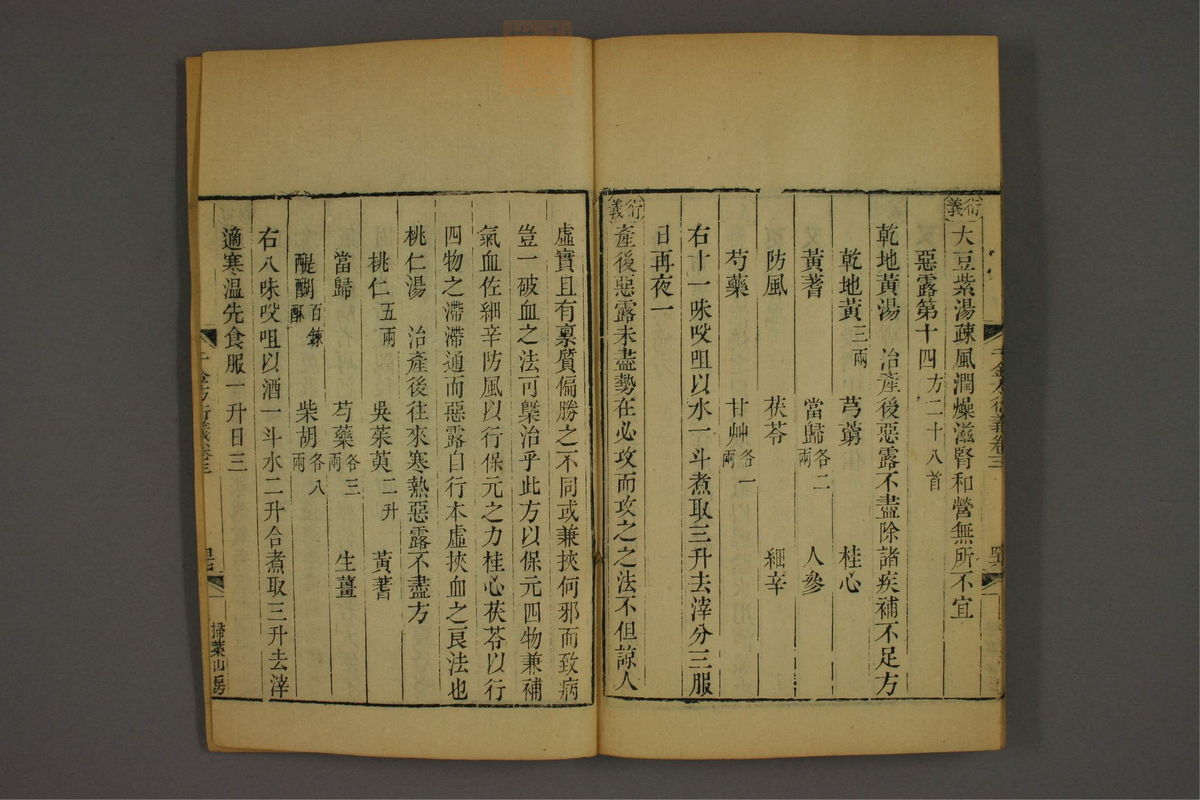 衍義
大豆紫湯疎風潤燥滋腎和營無所不宜
惡露第十四方二十八首
乾地黃湯　治產後惡露不盡除諸疾補不足方
乾地黃三兩　芎藭　桂心
黃蓍　當歸各二兩　人參
防風　茯苓　細辛
芍藥　甘艸各一兩
右十一味㕮咀以水一斗煮取三升去滓分三服
日再夜一
衍義
產後惡露未盡勢在必攻而攻之之法不但諒人
虛實且有稟質偏勝之不同或兼挾何邪而致病
豈一破血之法可槩治乎此方以保元四物兼補
氣血佐細辛防風以行保元之力桂心茯苓以行
四物之滯滯通而惡露自行本虛挾血之良法也
桃仁湯　治產後往來寒熱惡露不盡方
桃仁五兩　吳茱萸二升　黃蓍
當歸　芍藥各三兩　生薑
醍醐百鍊酥　柴胡各八兩
右八味㕮咀以酒一斗水二升合煮取三升去滓
適寒温先食服一升日三
千金方衍義卷三
掃葉山房